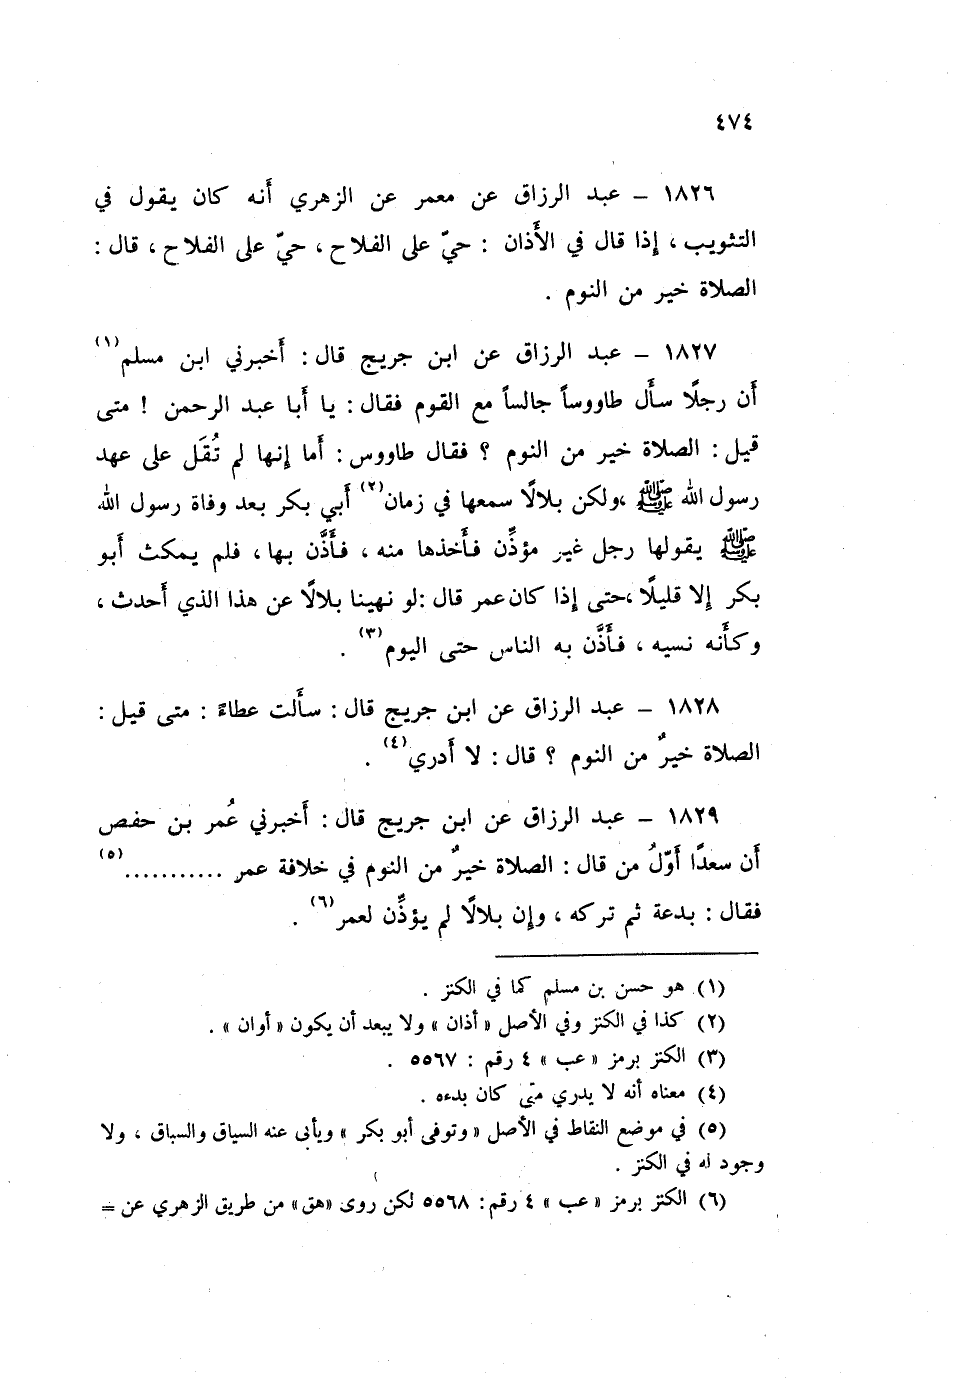 ٤٧٤
١٨٢٦ – عبد الرزاق عن معمر عن الزهري أنه كان يقول في
التثويب ، إذا قال في الأَذان : حيّ على الفلاح ، حيّ على الفلاح ، قال :
الصلاة خير من النوم .
١٨٢٧ – عبد الرزاق عن ابن جريج قال : أَخبرني ابن مسلم(١)
أَن رجلًا سأَل طاووساً جالساً مع القوم فقال : يا أَبا عبد الرحمن ! متى
قيل : الصلاة خير من النوم ؟ فقال طاووس : أَما إنها لم تُقَل على عهد
رسول الله ﷺ ،ولكن بلالًا سمعها في زمان(٢) أَبي بكر بعد وفاة رسول الله
ﷺ يقولها رجل غير مؤذِّن فأَخذها منه ، فأَذَّن بها ، فلم يمكث أَبو
بكر إلا قليلًا ،حتى إذا كان عمر قال :لو نهينا بلالًا عن هذا الذي أَحدث ،
وكأَنه نسيه ، فأَذَّن به الناس حتى اليوم(٣) .
١٨٢٨ – عبد الرزاق عن ابن جريج قال : سأَلت عطاءً : متى قيل :
الصلاة خيرٌ من النوم ؟ قال : لا أَدري(٤) .
١٨٢٩ – عبد الرزاق عن ابن جريج قال : أَخبرني عُمر بن حفص
أَن سعدًا أَوّلُ من قال : الصلاة خيرٌ من النوم في خلافة عمر ...........(٥)
فقال : بدعة ثم تركه ، وإن بلالًا لم يؤذِّن لعمر(٦) .
(١) هو حسن بن مسلم كما في الكنز .
(٢) كذا في الكنز وفي الأصل « أذان » ولا يبعد أن يكون « أوان » .
(٣) الكنز برمز « عب » ٤ رقم : ٥٥٦٧ .
(٤) معناه أنه لا يدري متى كان بدءه .
(٥) في موضع النقاط في الأصل « وتوفى أبو بكر » ويأبى عنه السياق والسباق ، ولا
وجود له في الكنز .
(٦) الكنز برمز « عب » ٤ رقم : ٥٥٦٨ لكن روى «هق» من طريق الزهري عن =